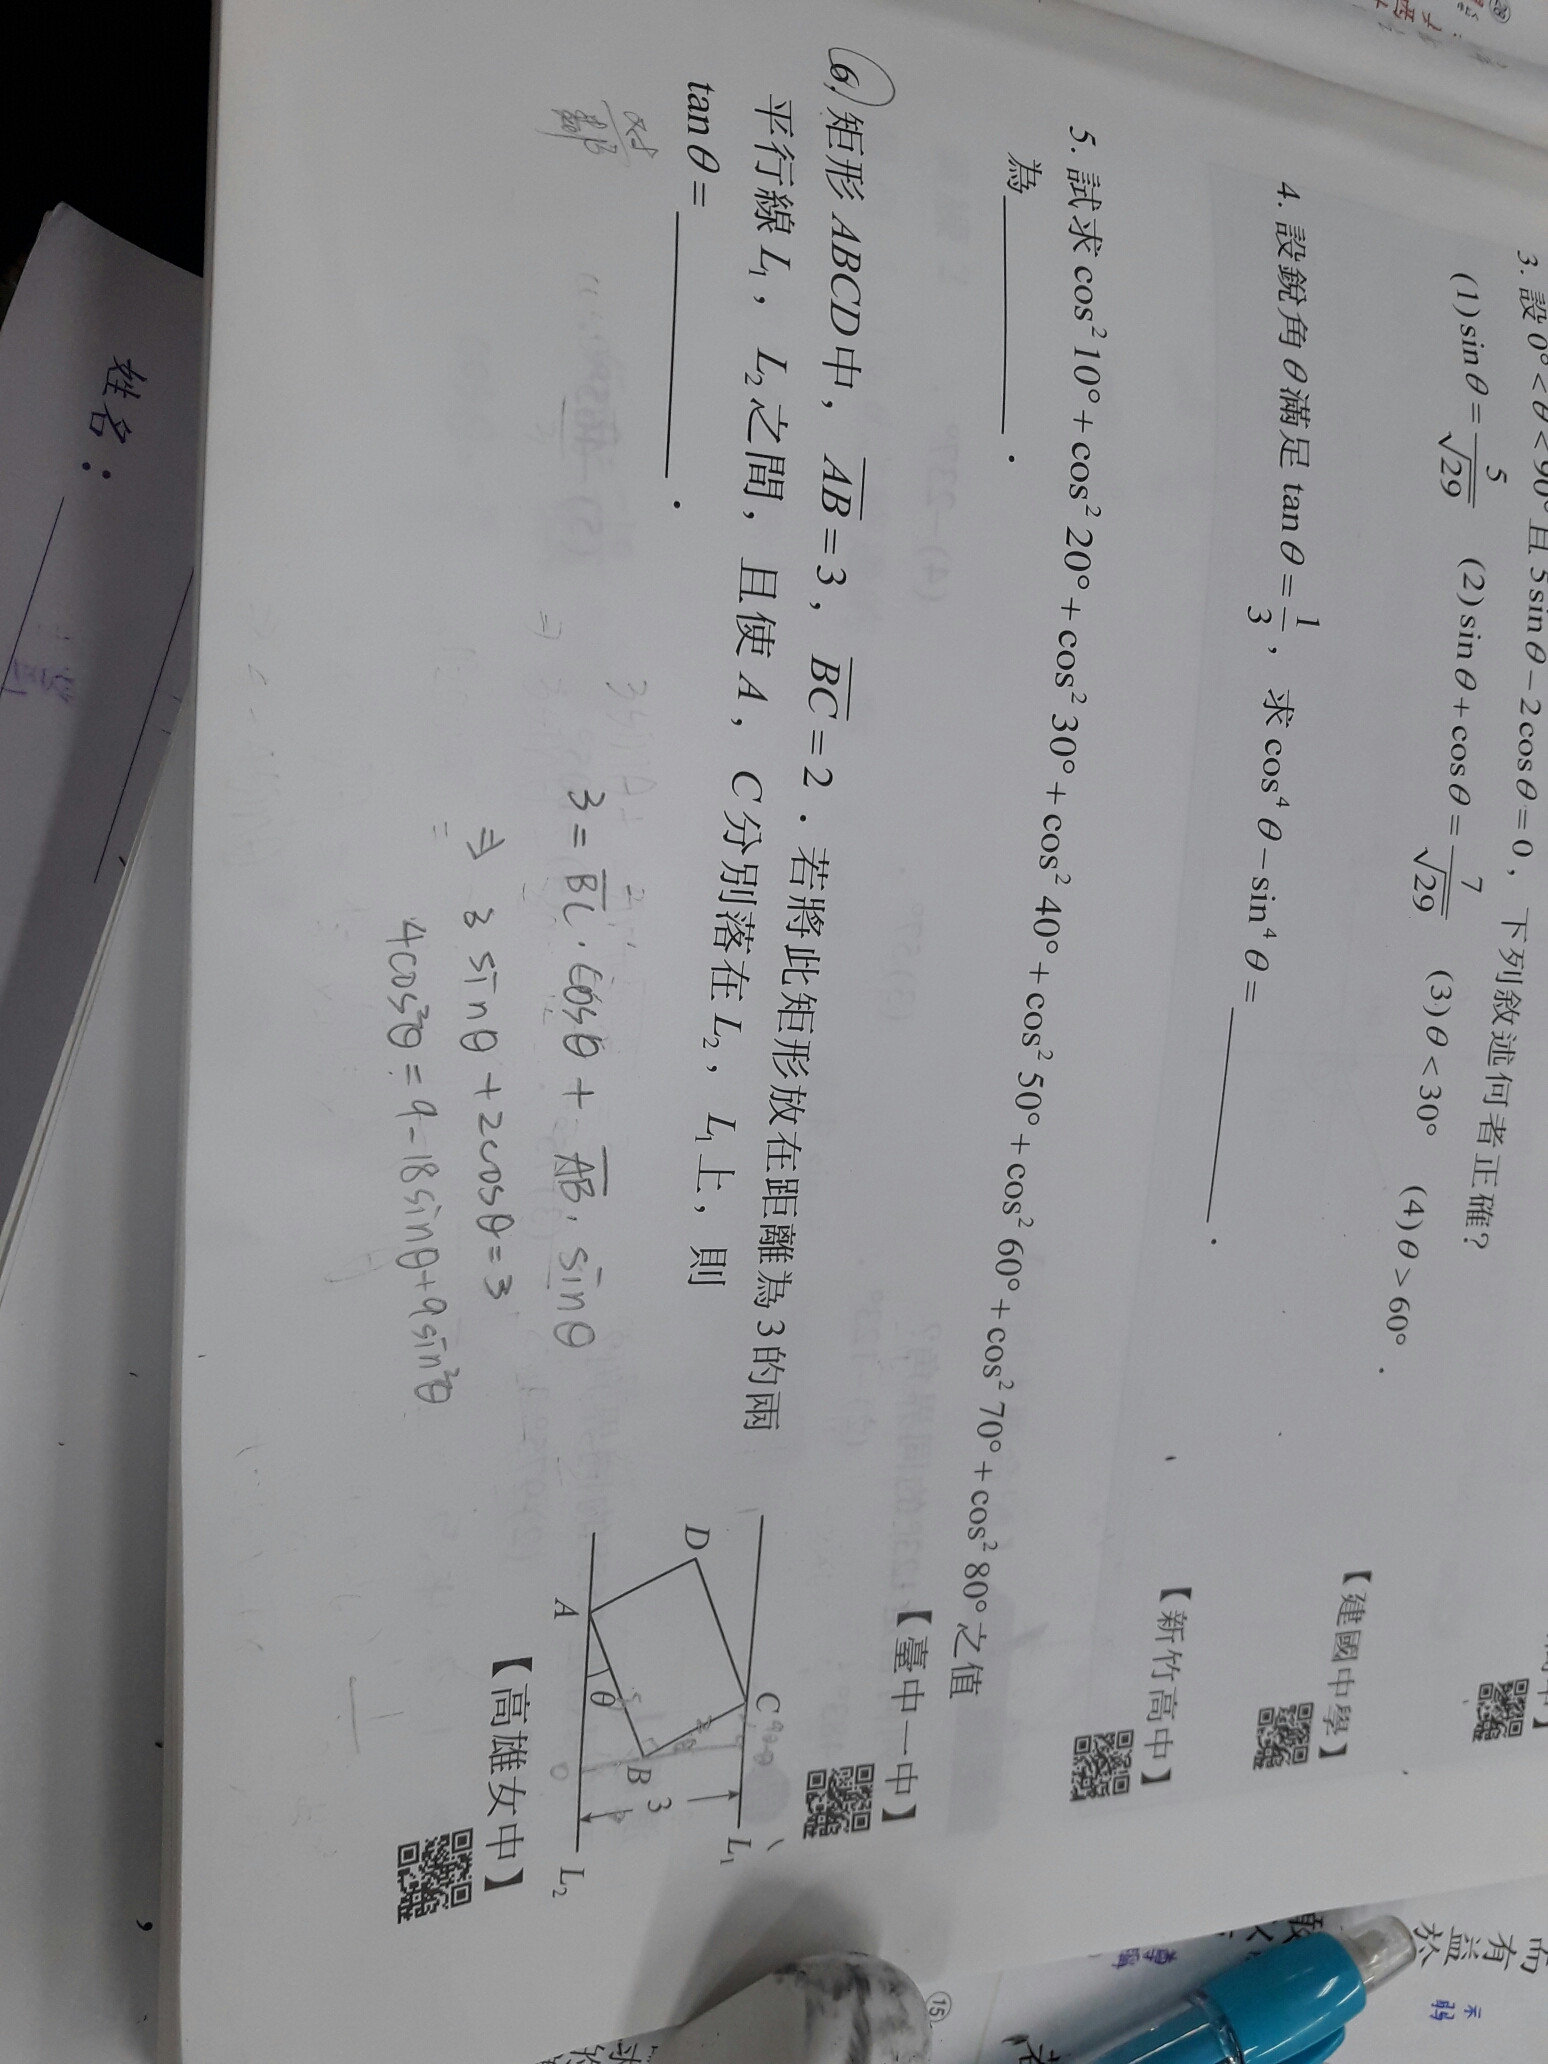 3. 設 0° < θ < 90° 且 5sinθ − 2cosθ = 0，下列敘述何者正確？
(1) sinθ = 5/√29 (2) sinθ + cosθ = 7/√29 (3) θ < 30° (4) θ > 60°．
【建國中學】
4. 設銳角 θ 滿足 tanθ = 1/3，求 cos⁴θ − sin⁴θ = ______．
【新竹高中】
5. 試求 cos²10° + cos²20° + cos²30° + cos²40° + cos²50° + cos²60° + cos²70° + cos²80° 之值
為______．
【臺中一中】
6. 矩形 ABCD 中，AB̅ = 3，BC̅ = 2．若將此矩形放在距離為 3 的兩
平行線 L₁，L₂ 之間，且使 A，C 分別落在 L₂，L₁ 上，則
tanθ = ______．
【高雄女中】
3 = BC̅ · cosθ + AB̅ · sinθ
⇒ 3 sinθ + 2cosθ = 3
4cos²θ = 9 − 18sinθ + 9sin²θ
D
C
L₁
A
θ
B
3
L₂
姓名：
15